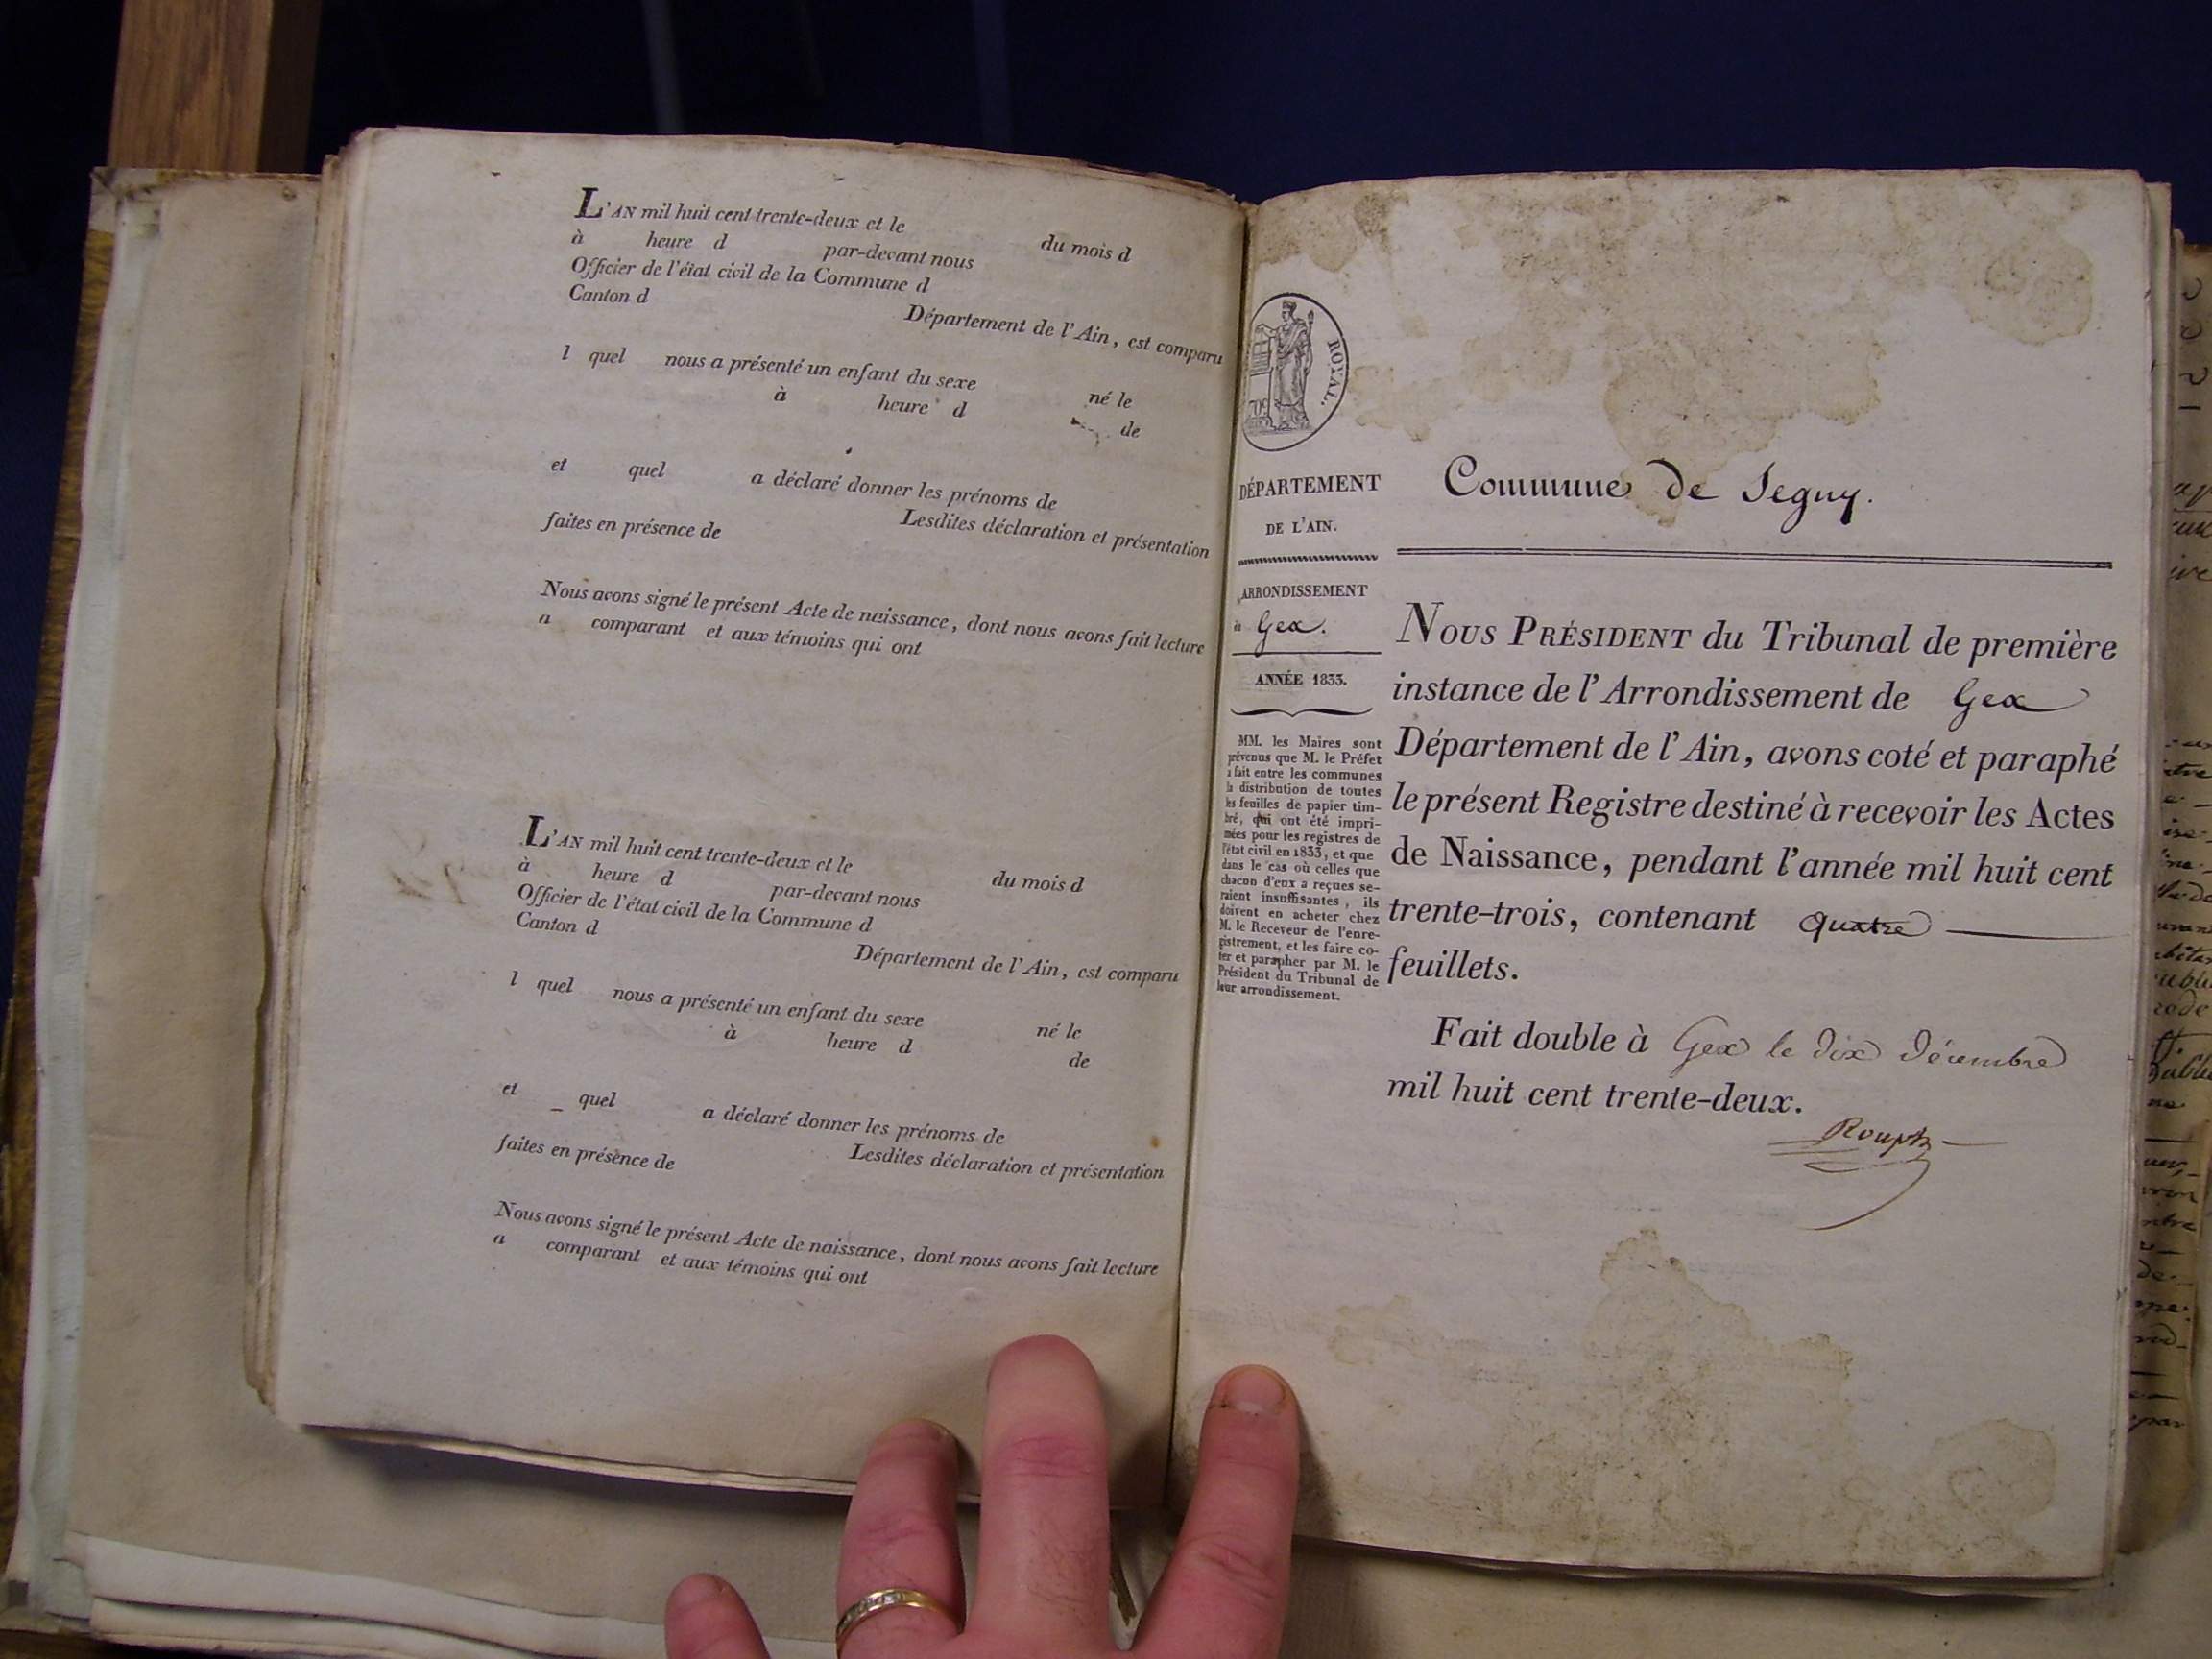 L'AN mil huit cent trente-deux et le du mois d
à heure d par-devant nous
Officier de l'état civil de la Commune d
Canton d Département de l'Ain, est comparu
l quel nous a présenté un enfant du sexe né le
à heure d de
et quel a déclaré donner les prénoms de
Lesdites déclaration et présentation
faites en présence de
Nous avons signé le présent Acte de naissance, dont nous avons fait lecture
a comparant et aux témoins qui ont
L'AN mil huit cent trente-deux et le du mois d
à heure d par-devant nous
Officier de l'état civil de la Commune d
Canton d Département de l'Ain, est comparu
l quel nous a présenté un enfant du sexe né le
à heure d de
et quel a déclaré donner les prénoms de
Lesdites déclaration et présentation
faites en présence de
Nous avons signé le présent Acte de naissance, dont nous avons fait lecture
a comparant et aux témoins qui ont
ROYAL.
DÉPARTEMENT
DE L'AIN.
ARRONDISSEMENT
Gex.
ANNÉE 1833.
MM. les Maires sont
prévenus que M. le Préfet
a fait entre les communes
la distribution de toutes
les feuilles de papier tim-
bré, qui ont été impri-
mées pour les registres de
l'état civil en 1833, et que
dans le cas où celles que
chacun d'eux a reçues se-
raient insuffisantes, ils
doivent en acheter chez
M. le Receveur de l'enre-
gistrement, et les faire co-
ter et parapher par M. le
Président du Tribunal de
leur arrondissement.
Commune de Segny.
NOUS PRÉSIDENT du Tribunal de première
instance de l'Arrondissement de Gex
Département de l'Ain, avons coté et paraphé
le présent Registre destiné à recevoir les Actes
de Naissance, pendant l'année mil huit cent
trente-trois, contenant quatre
feuillets.
Fait double à Gex le dix Décembre
mil huit cent trente-deux.